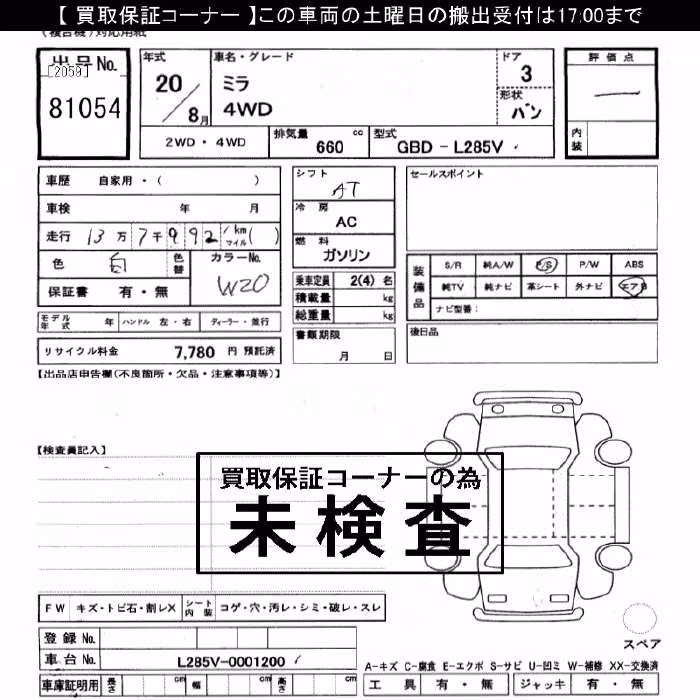 【 買取保証コーナー 】この車両の土曜日の搬出受付は17:00まで
出品No.
[2059]
81054
年式
20
8月
車名・グレード
ミラ
4WD
ドア
3
形状
バン
評価点
内装
2WD・4WD
排気量
660
cc
型式
GBD - L285V
車歴 自家用・( )
車検 年 月
走行 13万7千992 / km マイル ( )
色 白 色替
カラーNo. W20
保証書 有・無
シフト AT
冷房 AC
燃料 ガソリン
乗車定員 2(4) 名
積載量 kg
総重量 kg
書類期限
月 日
セールスポイント
装備品
S/R 純A/W P/S P/W ABS
純TV 純ナビ 革シート 外ナビ エアB
ナビ型番:
後日品
モデル年式 年 ハンドル 左・右 ディーラー・並行
リサイクル料金 7,780 円 預託済
【出品店申告欄(不良箇所・欠品・注意事項等)】
【検査員記入】
買取保証コーナーの為
未検査
FW キズ・トビ石・割レX シート内装 コゲ・穴・汚レ・シミ・破レ・スレ
登録 No.
車台 No. L285V-0001200
車庫証明用 長さ cm 幅 cm 高さ cm
スペア
A-キズ C-腐食 E-エクボ S-サビ U-凹ミ W-補修 XX-交換済
工具 有・無 ジャッキ 有・無